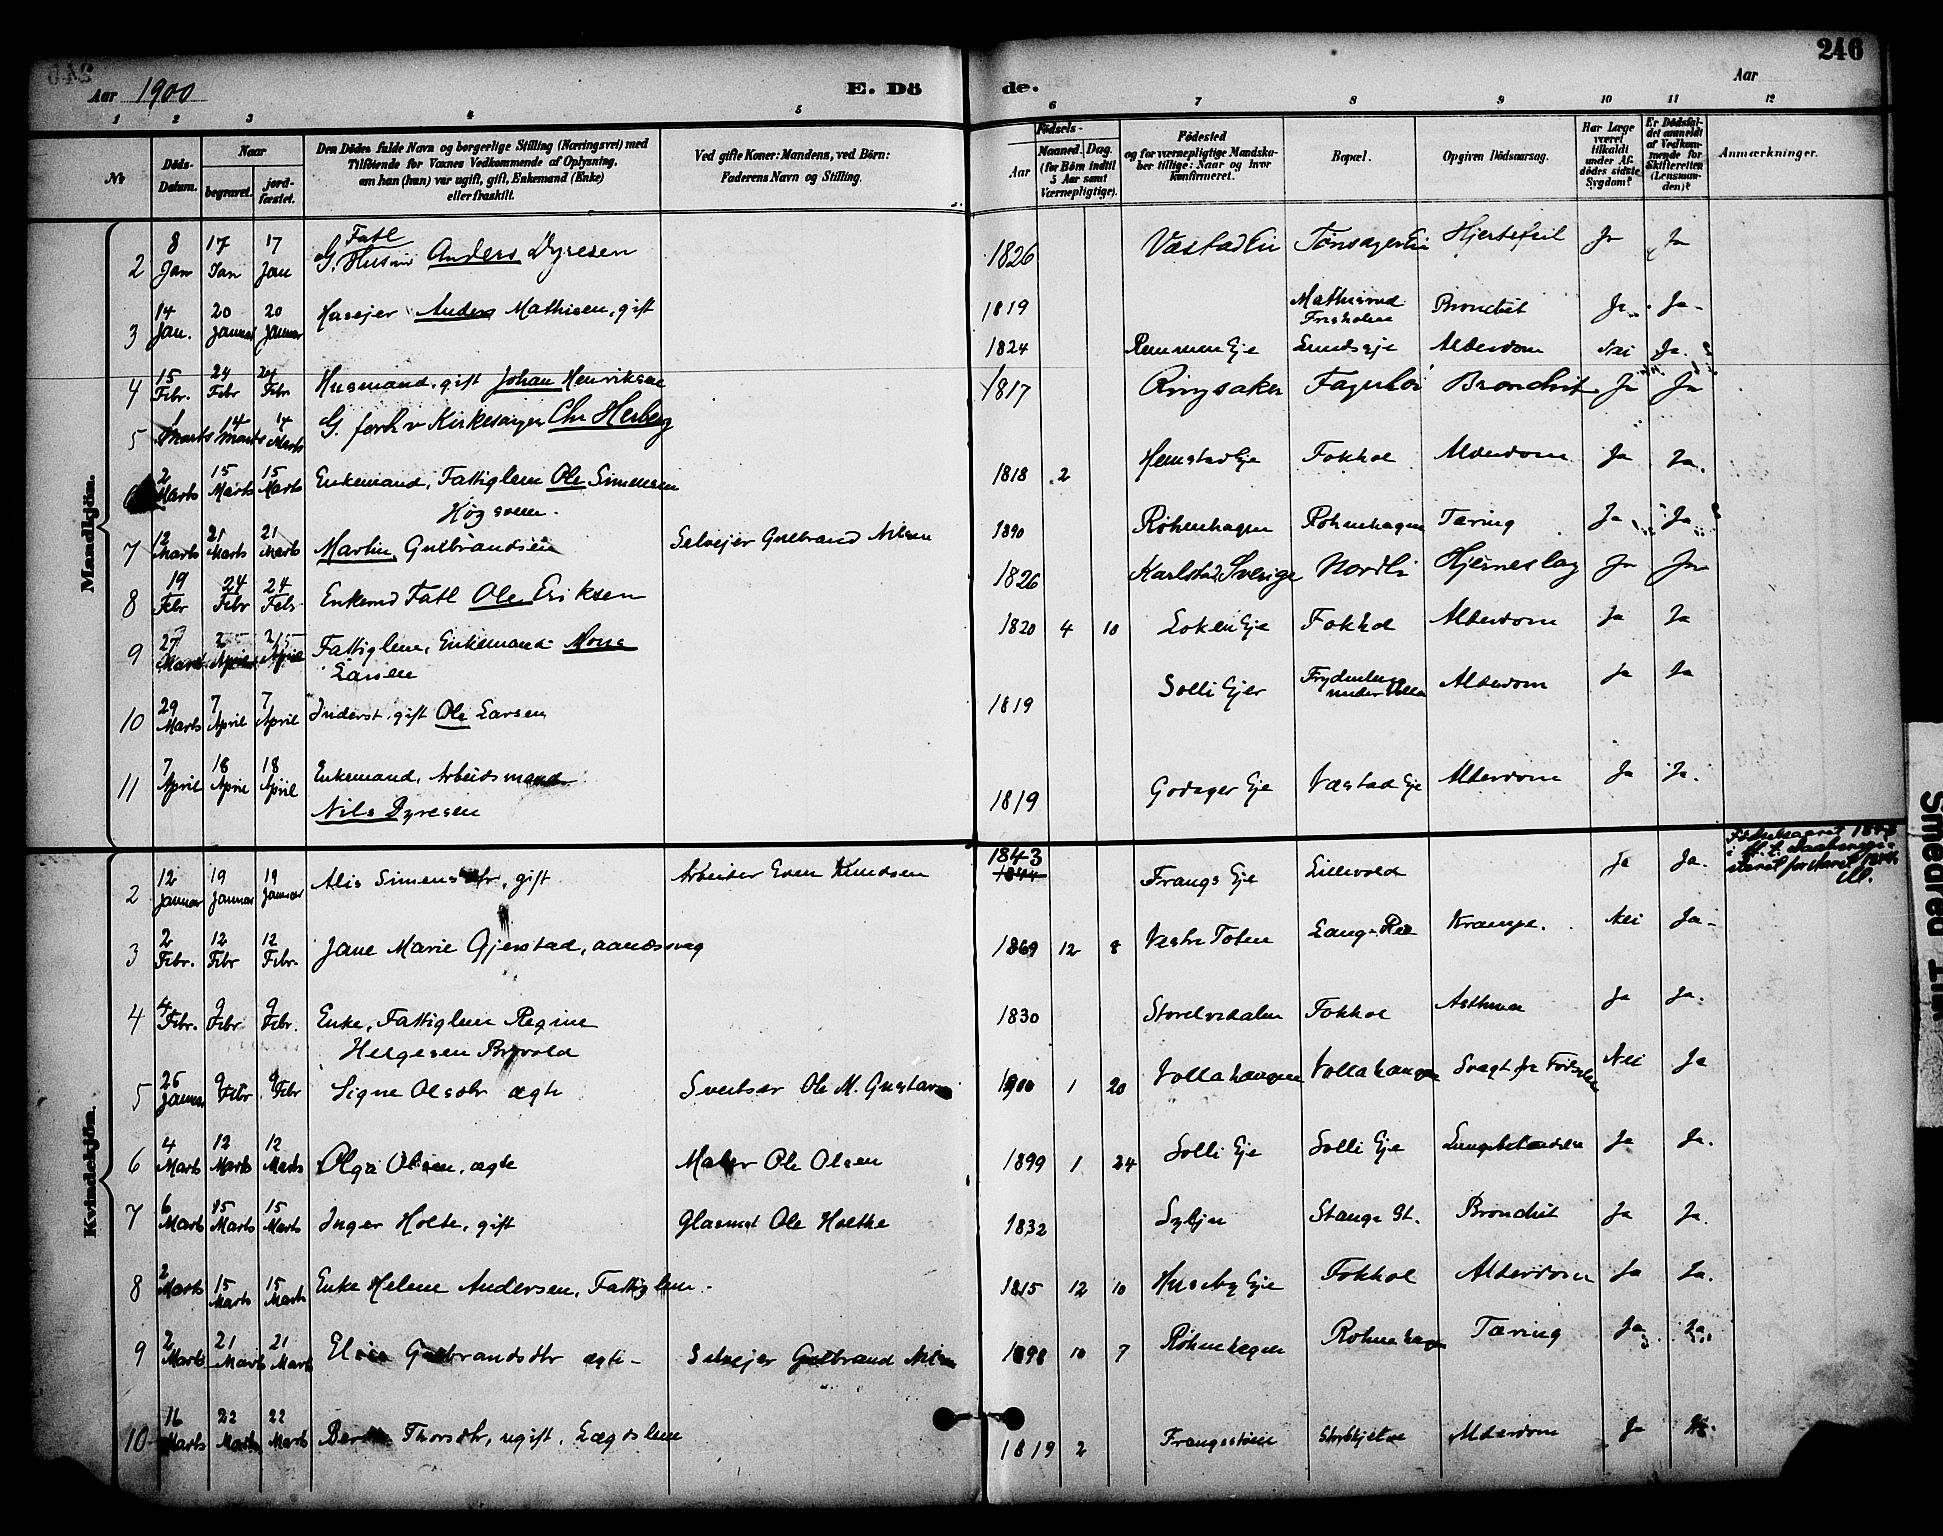 246
Aar 1900
E. Döde.
Aar
1 2 3 4 5 6 7 8 9 10 11 12
№
Döds-Datum.
Naar
begravet.
jord-fæstet.
Den Dödes fulde Navn og borgerlige Stilling (Næringsvei) med
Tilföiende for Voxnes Vedkommende af Oplysning,
om han (hun) var ugift, gift, Enkemand (Enke)
eller fraskilt.
Ved gifte Koner: Mandens, ved Börn:
Faderens Navn og Stilling.
Födsels-
Aar
Maaned. Dag.
(for Börn indtil
5 Aar samt
Værnepligtige).
Födested
og for værnepligtige Mandska-
ber tillige: Naar og hvor
konfirmeret.
Bopæl.
Opgiven Dödsaarsag.
Har Læge
været
tilkaldt
under Af-
dödes sidste
Sygdom?
Er Dödsfal-
det anmeldt
af Vedkom-
mende for
Skifteretten
(Lensman-
den)?
Anmærkninger.
Mandkjön.
2 8 Jan 17 Jan 17 Jan G. Fatl Husm Anders Dyresen 1826 Væstad Ei Hjertefeil Ja Ja
3 14 Jan. 20 Januar 20 Januar Husejer Anders Mathisen, gift 1819 Bronchit Ja Ja
4 15 Febr. 24 Febr 24 Febr Husmand, gift Johan Henriksen 1824 Remmen Eje Lundseje Alderdom Nei Ja.
5 Marts 14 Marts 14 Marts G. forh v Kirkesanger Chr Herberg 1817 Ringsaker Fagerhöi Bronchit Ja Ja
2 Marts 15 Marts 15 Marts Enkemand, Fattiglem Ole Simensen
1818 2 Hemstad Eje Fokhol Alderdom Ja Ja.
7 12 Marts 21 Marts 21 Marts Martin Gulbrandsen Selvejer Gulbrand Nilsen 1890 Röhnehagen Rohnehagen Tæring Ja Ja
8 19 Febr 24 Febr 24 Febr Enkemd Fatl Ole Eriksen 1826 Karlstad, Sverige Nordli Hjerneslag Ja Ja
9 27 Marts April April Fattiglem, Enkemand
Larsen 1820 4 10 Loken Eje Fokhol Alderdom Ja Ja
10 29 Marts 7 April 7 April Inderst, gift Ole Larsen 1819 Solli Ejer Alderdom Ja Ja
11 7 April 18 April 18 April Enkemand, Arbeidsmand
Nils Dyresen 1819 Godager Eje Væstad Eje Alderdom Ja Ja.
Kvindekjön.
2 12 Januar 19 Januar 19 Januar Alis Simensdtr, gift Arbeider Even Knudsen 1843 1844 Frangs Eje Lillevold Ja Ja.
3 2 Febr. 12 Febr 12 Febr. Jane Marie Gjerstad, aandssvag 1869 12 8 Vestre Toten Krampe. Nei Ja
4 4 Febr. 9 Febr 9 Febr. Enke, Fattiglem Regine
Helgesen Byvold 1830 Storelvedalen Fokhol Asthma Ja Ja.
5 26 Januar 9 Febr 9 Febr Signe Olsdtr ægte Sveitser Ole M. Gustavsen 1900 1 20 Vollahaugen Vollahaugen Svagt fra Födselen Nei Ja
6 4 Marts 12 Marts 12 Marts Olga Olsen, ægte Maler Ole Olsen 1899 1 24 Solli Eje Solli Eje Lungebetændelse Ja Ja.
7 6 Marts 15 Marts 15 Marts Inger Holte, gift Glasmst Ole Holthe 1832 Stange St. Bronchit Ja Ja.
8 2 Marts 15 Marts 15 Marts Enke Helene Andersen, Fattiglem. 1815 12 10 Huseby Eje Fokhol Alderdom Ja Ja.
9 2 Marts 21 Marts 21 Marts Gulbrandsdtr ægte Selvejer Gulbrand Nilsen 1898 10 7 Röhnehagen Rohnehagen Tæring Ja Ja
10 16 Marts 22 Marts 22 Marts Thorsdtr, ugift, Lægdslem 1819 2 Alderdom Ja